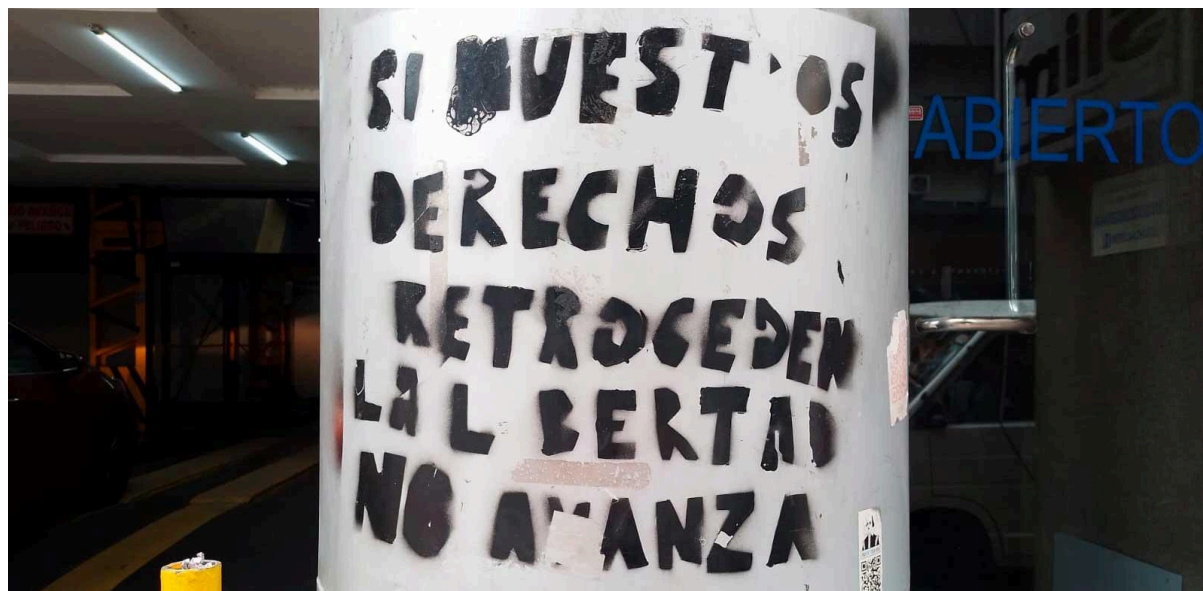 SI NUEST OS
DERECHOS
RETROCEDEN
La L BERTAD
NO AVANZA
ABIERTO